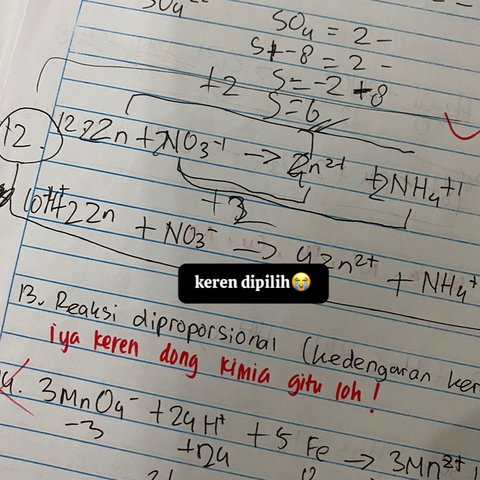 SO4
SO4 = 2-
S + -8 = 2-
S = -2 +8
S = 6
+2
12.
Zn + NO3-1 → Zn2+ + 2NH4+1
+3
Zn + NO3- → 4Zn2+ + NH4+
keren dipilih😭
13. Reaksi diproporsional (kedengaran ker
iya keren dong kimia gitu loh!
3MnO4- + 24H+ + 5 Fe → 3Mn2+
-3